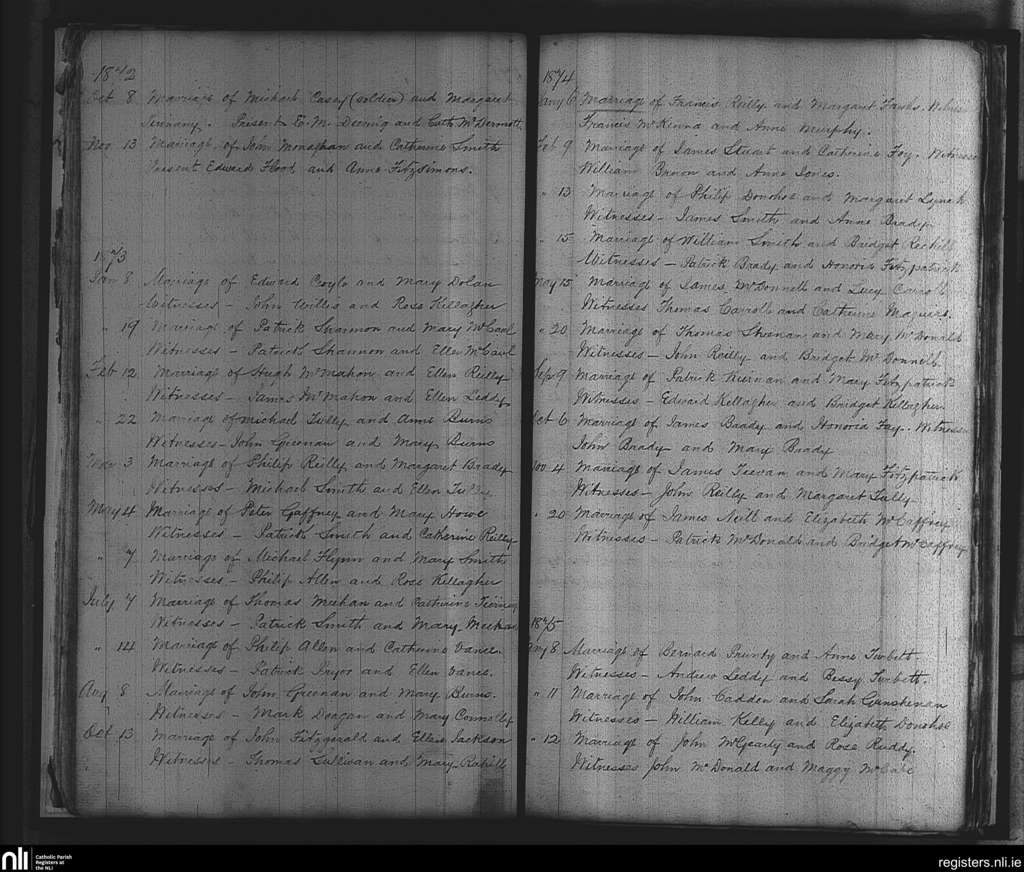 1872
Oct 8 Marriage of Michael Casey (soldier) and Margaret
Present E. M. Deering and Cath McDermott
Nov 13 Marriage of John Monaghan and Catherine Smith
Present Edward Flood and Anne Fitzsimons.
1873
Jan 8 Marriage of Edward Coyle and Mary Dolan
Witnesses – John Willis and Rose Killagher
" 19 Marriage of Patrick Shannon and Mary McCaul
Witnesses – Patrick Shannon and Ellen McCaul
Feb 12 Marriage of Hugh McMahon and Ellen Reilly
Witnesses – James McMahon and Ellen Leddy
" 22 Marriage of Michael Tully and Anne Burns
Witnesses – John Greenan and Mary Burns
3 Marriage of Philip Reilly and Margaret Brady
Witnesses – Michael Smith and Ellen
May 4 Marriage of Peter Gaffney and Mary Howe
Witnesses – Patrick Smith and Catherine Reilly
" 7 Marriage of Michael Flynn and Mary Smith
Witnesses – Philip Allen and Rose Kellagher
July 7 Marriage of Thomas Meehan and Catherine Tierney
Witnesses – Patrick Smith and Mary Meehan
" 14 Marriage of Philip Allen and Catherine Vance.
Witnesses – Patrick Pryor and Ellen Vance.
Aug 8 Marriage of John Greenan and Mary Burns.
Witnesses – Mark Deegan and Mary Connolly
Oct 13 Marriage of John Fitzgerald and Ellen Jackson
Witnesses – Thomas Sullivan and Mary Rahill
1874
6 Marriage of Francis Reilly and Margaret
Francis McKenna and Anne Murphy.
Feb 9 Marriage of James Stuart and Catherine Foy. Witnesses
William Brown and Anne Jones.
" 13 Marriage of Philip Donohoe and Margaret Lynch
Witnesses – James Smith and Anne Brady
" 15 Marriage of William Smith and Bridget
Witnesses – Patrick Brady and Honoria Fitzpatrick
May 15 Marriage of James McDonnell and Lucy Carroll
Witnesses Thomas Carroll and Catherine Maguire.
" 20 Marriage of Thomas Sheenan and Mary McDonald
Witnesses – John Reilly and Bridget McDonnell.
Sep 9 Marriage of Patrick Kiernan and Mary Fitzpatrick
Witnesses – Edward Kellagher and Bridget Kellagher
Oct 6 Marriage of James Brady and Honoria Fay. Witnesses
John Brady and Mary Brady
Nov 4 Marriage of James Teevan and Mary Fitzpatrick
Witnesses – John Reilly and Margaret Tully
" 20 Marriage of James Neill and Elizabeth McCaffrey
Witnesses – Patrick McDonald and Bridget McCaffrey
1875
8 Marriage of Bernard Prunty and Anne Turbett
Witnesses – Andrew Leddy and Bessy Turbett.
" 11 Marriage of John Cadden and Sarah Gunshenan
Witnesses – William Kelly and Elizabeth Donohoe
" 12 Marriage of John McGearty and Rose Reddy.
Witnesses John McDonald and Maggy McCabe
nli Catholic Parish
Registers at
the NLI
registers.nli.ie